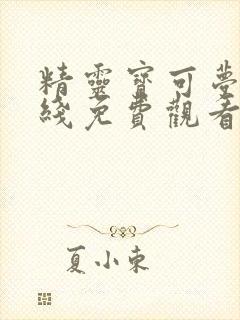 精靈寶可夢
綫免費觀看
夏小東